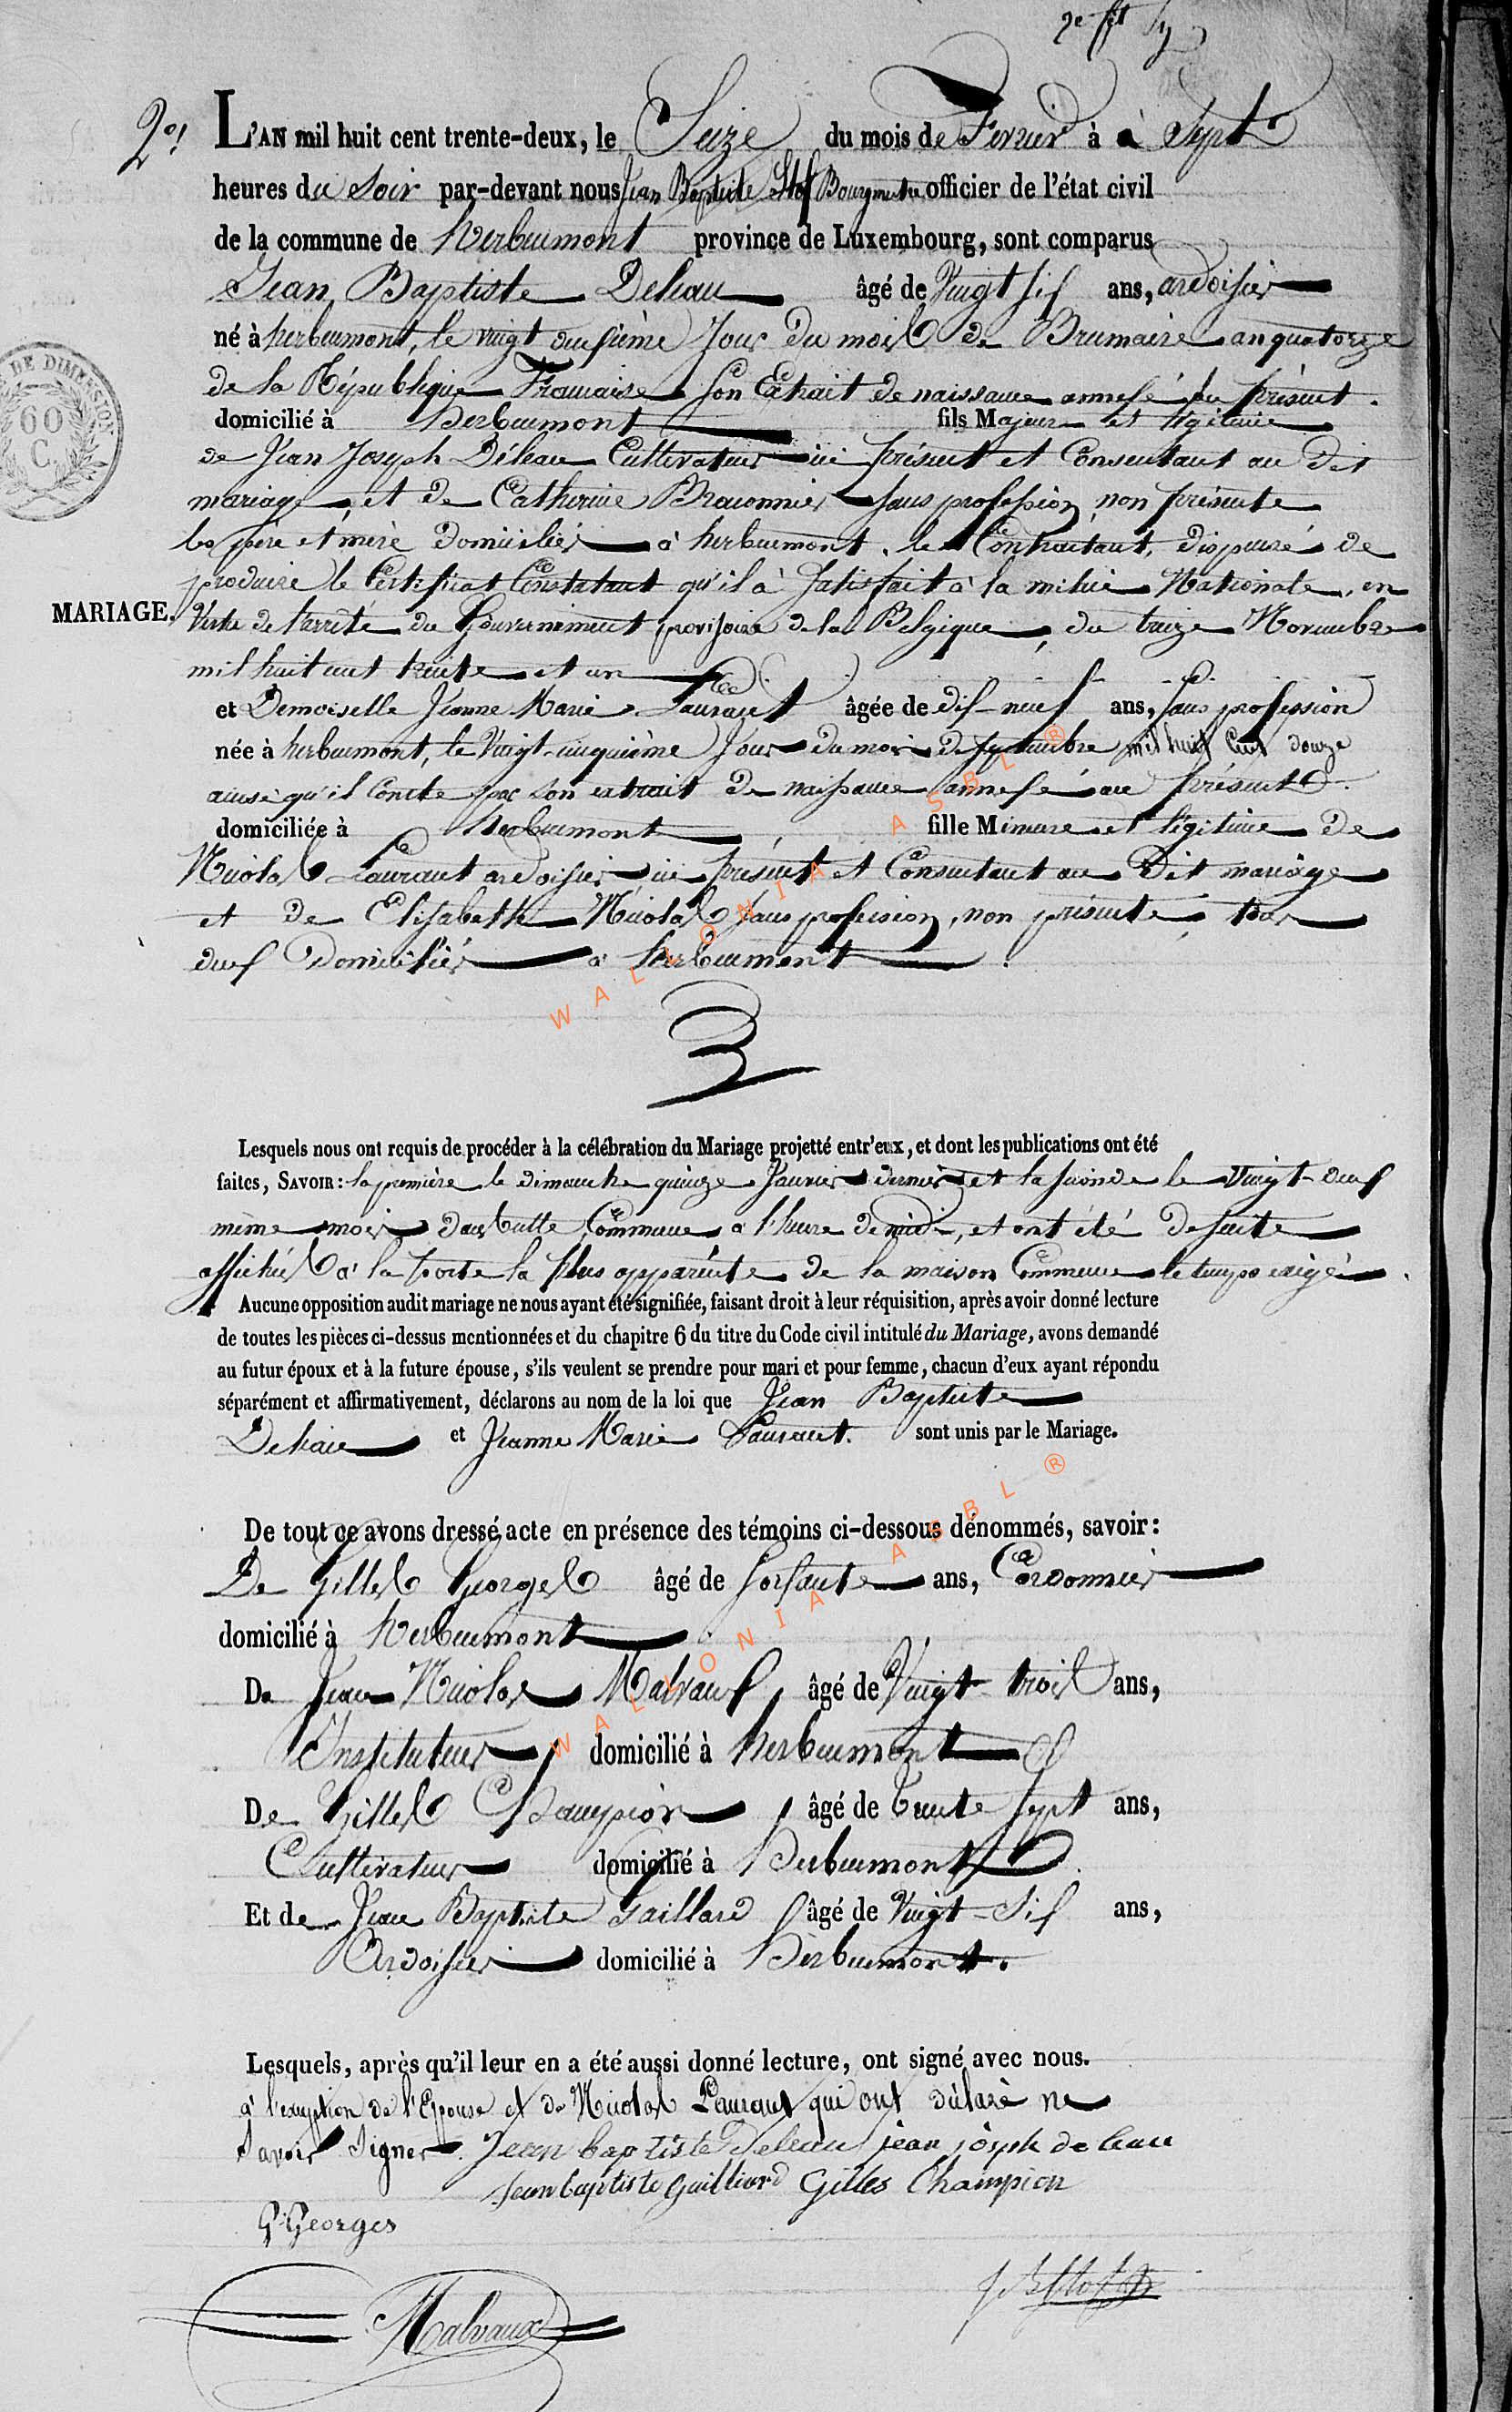 2°/
L'AN mil huit cent trente-deux, le Seize du mois de Fevrier à à Sept
heures du Soir par-devant nous Jean Baptiste Bourgmestre officier de l'état civil
de la commune de herbeumont province de Luxembourg, sont comparus
Jean Baptiste Deleau âgé de Vingt six ans, ardoisier
né à herbeumont, le vingt deuxième Jour du mois de Brumaire an quatorze
de la République Francaise son Extrait de naissance annexé au présent.
domicilié à herbeumont fils Majeur et légitime
de Jean Joseph Déleau Cultivateur ici présent et Consentant au dit
mariage, et de Catherine Braconnier sans profession, non présente
les père et mère Domiciliés à herbeumont. le Contractant, dispensé de
produire le Certificat Constatant qu'il à Satisfait à la milice Nationale, en
MARIAGE. Vertu de l'arrêté du Gouvernement provisoire de la Belgique, du treize Novembre
mil huit cent trente et un
et Demoiselle Jeanne Marie Laurant âgée de dix-neuf ans, sans profession
née à herbeumont, le Vingt-cinquième Jour du mois de septembre mil huit Cent douze
ainsi qu'il Conste par son extrait de naissance annexé au présent.
domiciliée à herbeumont fille Mineure et légitime de
Nicolas Laurant ardoisier ici présent et Consentant au Dit mariage
et de Elisabeth Nicolas sans profession, non présente, tous
deux Domiciliés à herbeumont.
Lesquels nous ont requis de procéder à la célébration du Mariage projetté entr'eux, et dont les publications ont été
faites, SAVOIR: la première le dimanche quinze Janvier dernier et la seconde le vingt-deux
même mois dans Cette Commune à l'heure de midi, et ont été de suite
affichés à la porte la plus apparente de la maison Commune le temps exigé.
Aucune opposition audit mariage ne nous ayant été signifiée, faisant droit à leur réquisition, après avoir donné lecture
de toutes les pièces ci-dessus mentionnées et du chapitre 6 du titre du Code civil intitulé du Mariage, avons demandé
au futur époux et à la future épouse, s'ils veulent se prendre pour mari et pour femme, chacun d'eux ayant répondu
séparément et affirmativement, déclarons au nom de la loi que Jean Baptiste
Deleau et Jeanne Marie Laurant. sont unis par le Mariage.
De tout ce avons dressé acte en présence des témoins ci-dessous dénommés, savoir:
De Gilles Georges âgé de soixante ans, Cordonnier
domicilié à herbeumont
De Jean Nicolas Malvaux, âgé de Vingt-trois ans,
Instituteur, domicilié à herbeumont
De Gilles Champion, âgé de trente sept ans,
Cultivateur domicilié à herbeumont
Et de Jean Baptiste Gaillard âgé de Vingt-Six ans,
Ardoisier domicilié à herbeumont.
Lesquels, après qu'il leur en a été aussi donné lecture, ont signé avec nous.
à l'exception de l'Epouse et de Nicolas Laurant qui ont déclaré ne
Savoir Signer. Jean baptiste deleau jean joseph de leau
Jean baptiste Gailliard Gilles Champion
G Georges
Malvaux
DE DIMENSION
60
C.
WALLONIA ASBL ®
WALLONIA ASBL ®